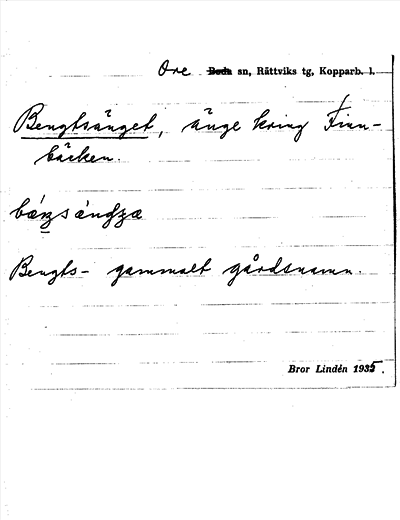 Ore Boda sn, Rättviks tg, Kopparb. l.
Bengtsänget, änge kring Finn-
bäcken.
Bengts- gammalt gårdsnamn.
Bror Lindén 1935.